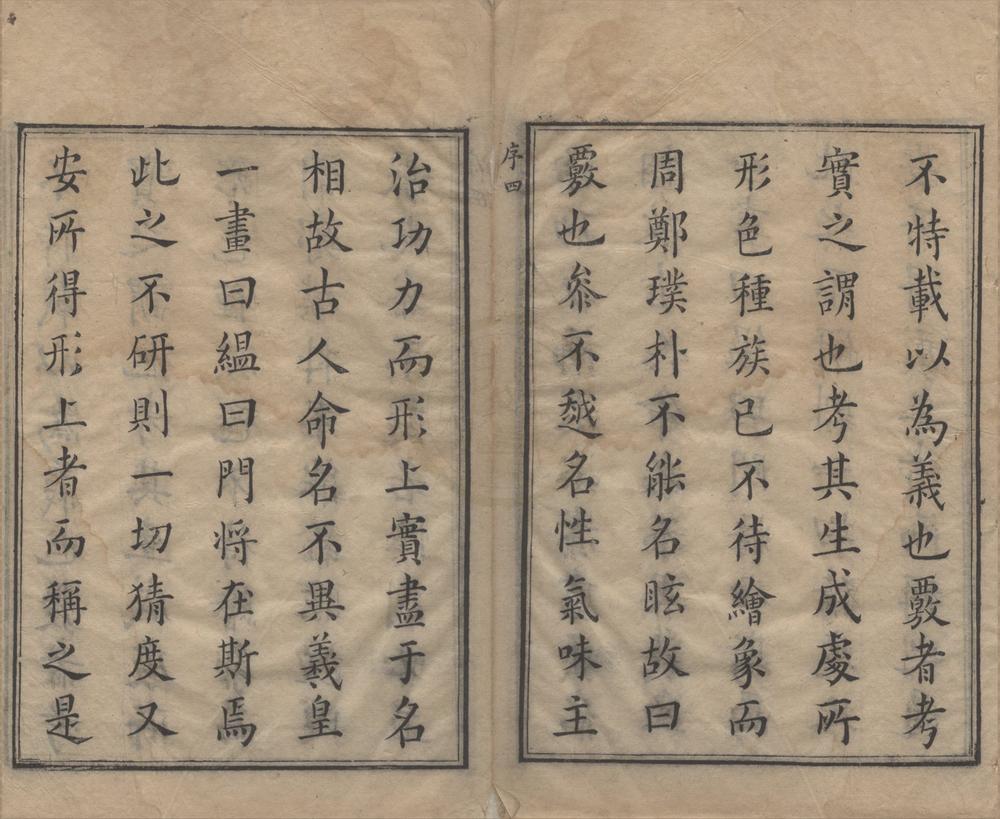 不特載以為義也覈者考
實之謂也考其生成處所
形色種族已不待繪象而
周鄭璞朴不能名眩故曰
覈也叅不越名性氣味主
序四
治功力而形上實盡于名
相故古人命名不異羲皇
一畫曰縕曰門將在斯焉
此之不研則一切猜度又
安所得形上者而稱之是